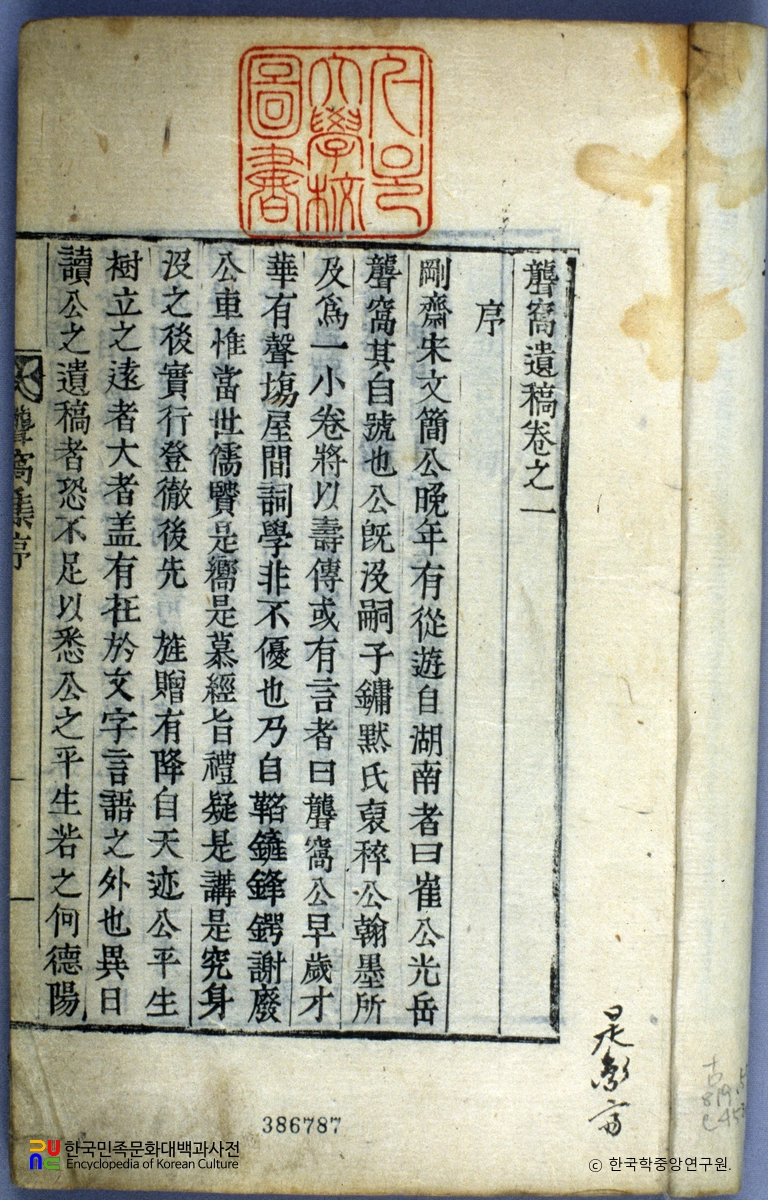 聾窩遺稿卷之一
序
剛齋宋文簡公晩年有從遊自湖南者曰崔公光岳
聾窩其自號也公旣沒嗣子鏞默氏裒稡公翰墨所
及爲一小卷將以壽傳或有言者曰聾窩公早歲才
華有聲塲屋間詞學非不優也乃自韜鏟鋒鍔謝廢
公車惟當世儒賢是嚮是慕經旨禮疑是講是究身
沒之後實行登徹後先 旌贈有降自天迹公平生
樹立之遠者大者盖有在於文字言語之外也異日
讀公之遺稿者恐不足以悉公之平生若之何德陽
聾窩集序
圖書
大學校
386787
한국민족문화대백과사전
Encyclopedia of Korean Culture
© 한국학중앙연구원.